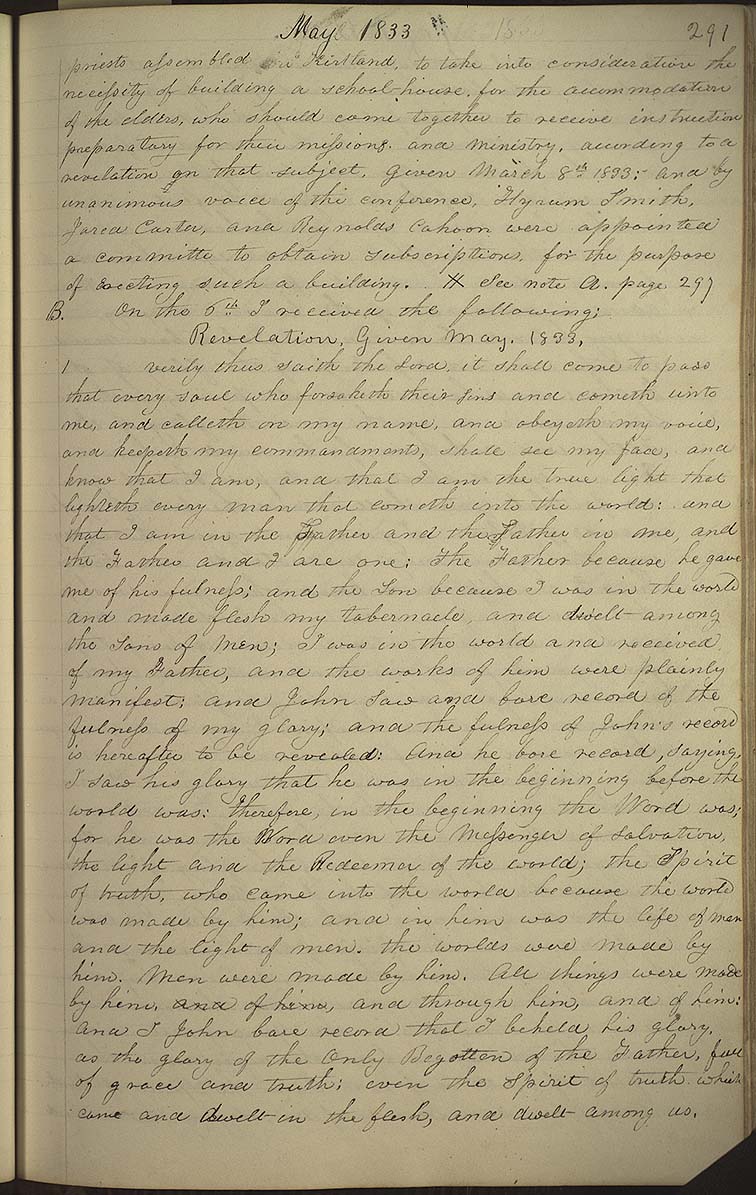 May 1833
291
priests assembled in Kirtland, to take into consideration the
necessity of building a school-house, for the accommodation
of the elders, who should come together to receive instruction
preparatory for their missions, and ministry, according to a
revelation on that subject, given March 8th 1833; and by
unanimous voice of the conference, Hyrum Smith,
Jared Carter, and Reynolds Cahoon were appointed
a committe to obtain subscriptions, for the purpose
of erecting such a building. See note A. page 297
B. On the 6th I received the following;
Revelation, Given May. 1833,
1 verily thus saith the Lord, it shall come to pass
that every soul who forsaketh their sins and cometh unto
me, and calleth on my name, and obeyeth my voice,
and keepeth my commandments, shall see my face, and
know that I am, and that I am the true light that
lighteth every man that cometh into the world: and
that I am in the Father and the Father in me, and
the Father and I are one: The Father because he gave
me of his fulness; and the Son because I was in the world
and made flesh my tabernacle, and dwelt among
the sons of men; I was in the world and received
of my Father, and the works of him were plainly
manifest; and John saw and bare record of the
fulness of my glory; and the fulness of John's record
is hereafter to be revealed: And he bore record, saying,
I saw his glory that he was in the beginning before the
world was: therefore, in the beginning the Word was;
for he was the Word even the Messenger of salvation,
the light and the Redeemer of the world; the Spirit
of truth, who came into the world because the world
was made by him; and in him was the life of men
and the light of men. the worlds were made by
him. Men were made by him. All things were made
by him, and of him, and through him, and of him:
and I John bare record that I beheld his glory,
as the glory of the Only Begotten of the Father, full
of grace and truth; even the Spirit of truth which
came and dwelt in the flesh, and dwelt among us.